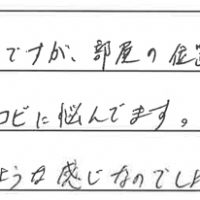 ですが、部屋の位置
コビに悩んでます。
ような感じなのでしょ